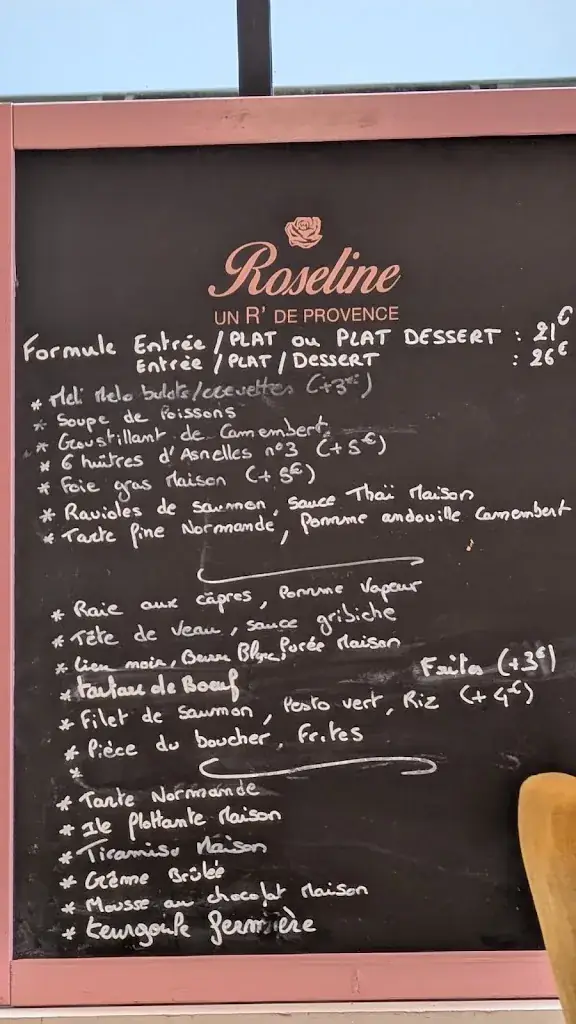 Roseline
UN R' DE PROVENCE
Formule Entrée / PLAT ou PLAT DESSERT : 21€
Entrée / PLAT / Dessert : 26€
* Meli Melo bulots/crevettes (+3€)
* Soupe de Poissons
* Croustillant de Camembert
* 6 huîtres d'Asnelles n°3 (+5€)
* Foie gras Maison (+5€)
* Ravioles de saumon, sauce Thaï Maison
* Tarte fine Normande, Pomme andouille Camembert
* Raie aux câpres, Pomme Vapeur
* Tête de Veau, sauce gribiche
* Lieu noir, Beurre Blanc, Purée Maison
* Tartare de Boeuf Frites (+3€)
* Filet de Saumon, Pesto vert, Riz (+4€)
* Pièce du boucher, Frites
*
* Tarte Normande
* Ile Flottante Maison
* Tiramisu Maison
* Crème Brûlée
* Mousse au chocolat Maison
* Teurgoule fermière